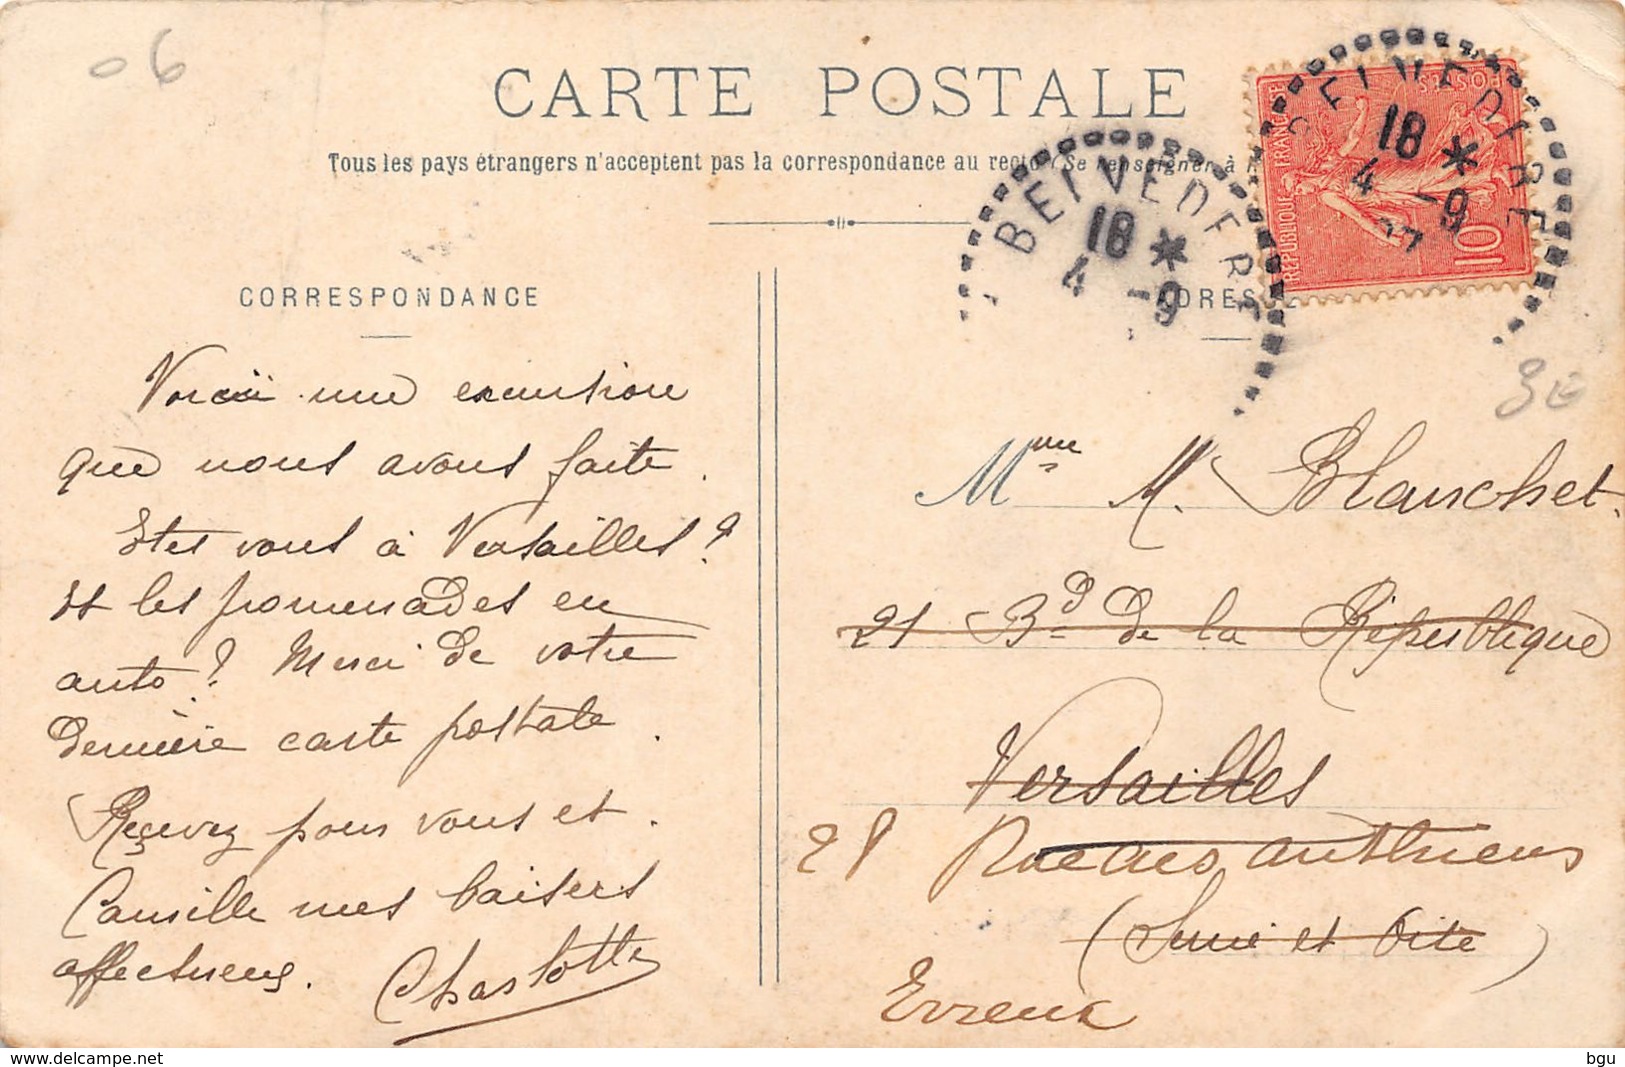 06
CARTE POSTALE
Tous les pays étrangers n'acceptent pas la correspondance au recto (Se renseigner à
BELVEDERE
18 *
4 -9
BELVEDERE
18 *
4 -9
07
POSTES
REPUBLIQUE FRANÇAISE
10
CORRESPONDANCE
ADRESSE
3E
Voici une excursion
que nous avons faite.
Etes vous à Versailles?
Et les promenades en
auto? Merci de votre
dernière carte postale.
Recevez pour vous et
Camille mes baisers
affectueux. Charlotte
Mme M. Blanchet.
21 Bd de la République
Versailles
28 Rue
(Seine et Oise)
Evreux
bgu
delcampe.net